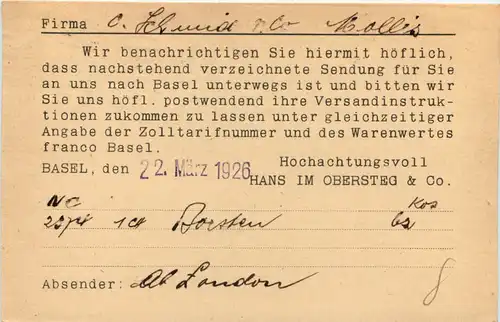 Firma C. Schmid & Co Mollis
Wir benachrichtigen Sie hiermit höflich,
dass nachstehend verzeichnete Sendung für Sie
an uns nach Basel unterwegs ist und bitten wir
Sie uns höfl. postwendend ihre Versandinstruk-
tionen zukommen zu lassen unter gleichzeitiger
Angabe der Zolltarifnummer und des Warenwertes
franco Basel.
Hochachtungsvoll
BASEL, den 22. März 1926
HANS IM OBERSTEG & Co.
NC Kos
Borsten
Absender: Ab London
8